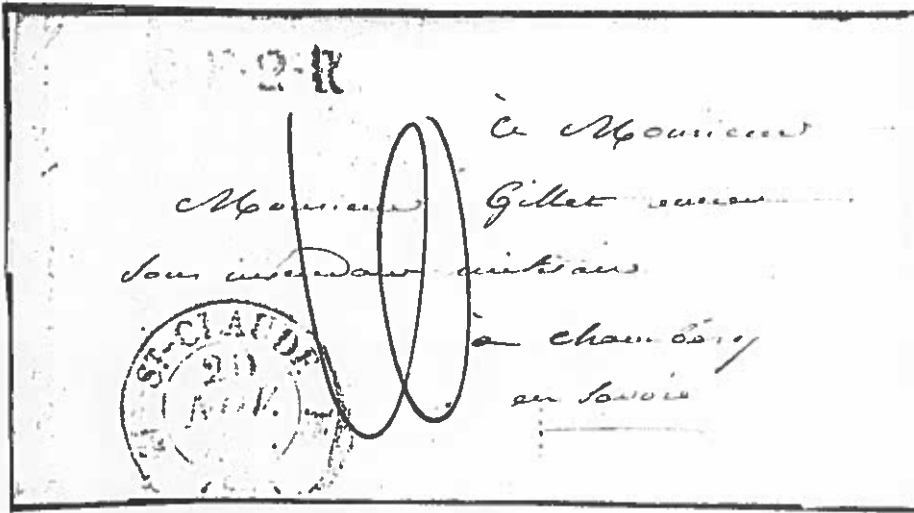 2·R
à Monsieur
Monsieur Gillet
Sous intendant militaire
à Chambéry
en Savoie
ST-CLAUDE
20